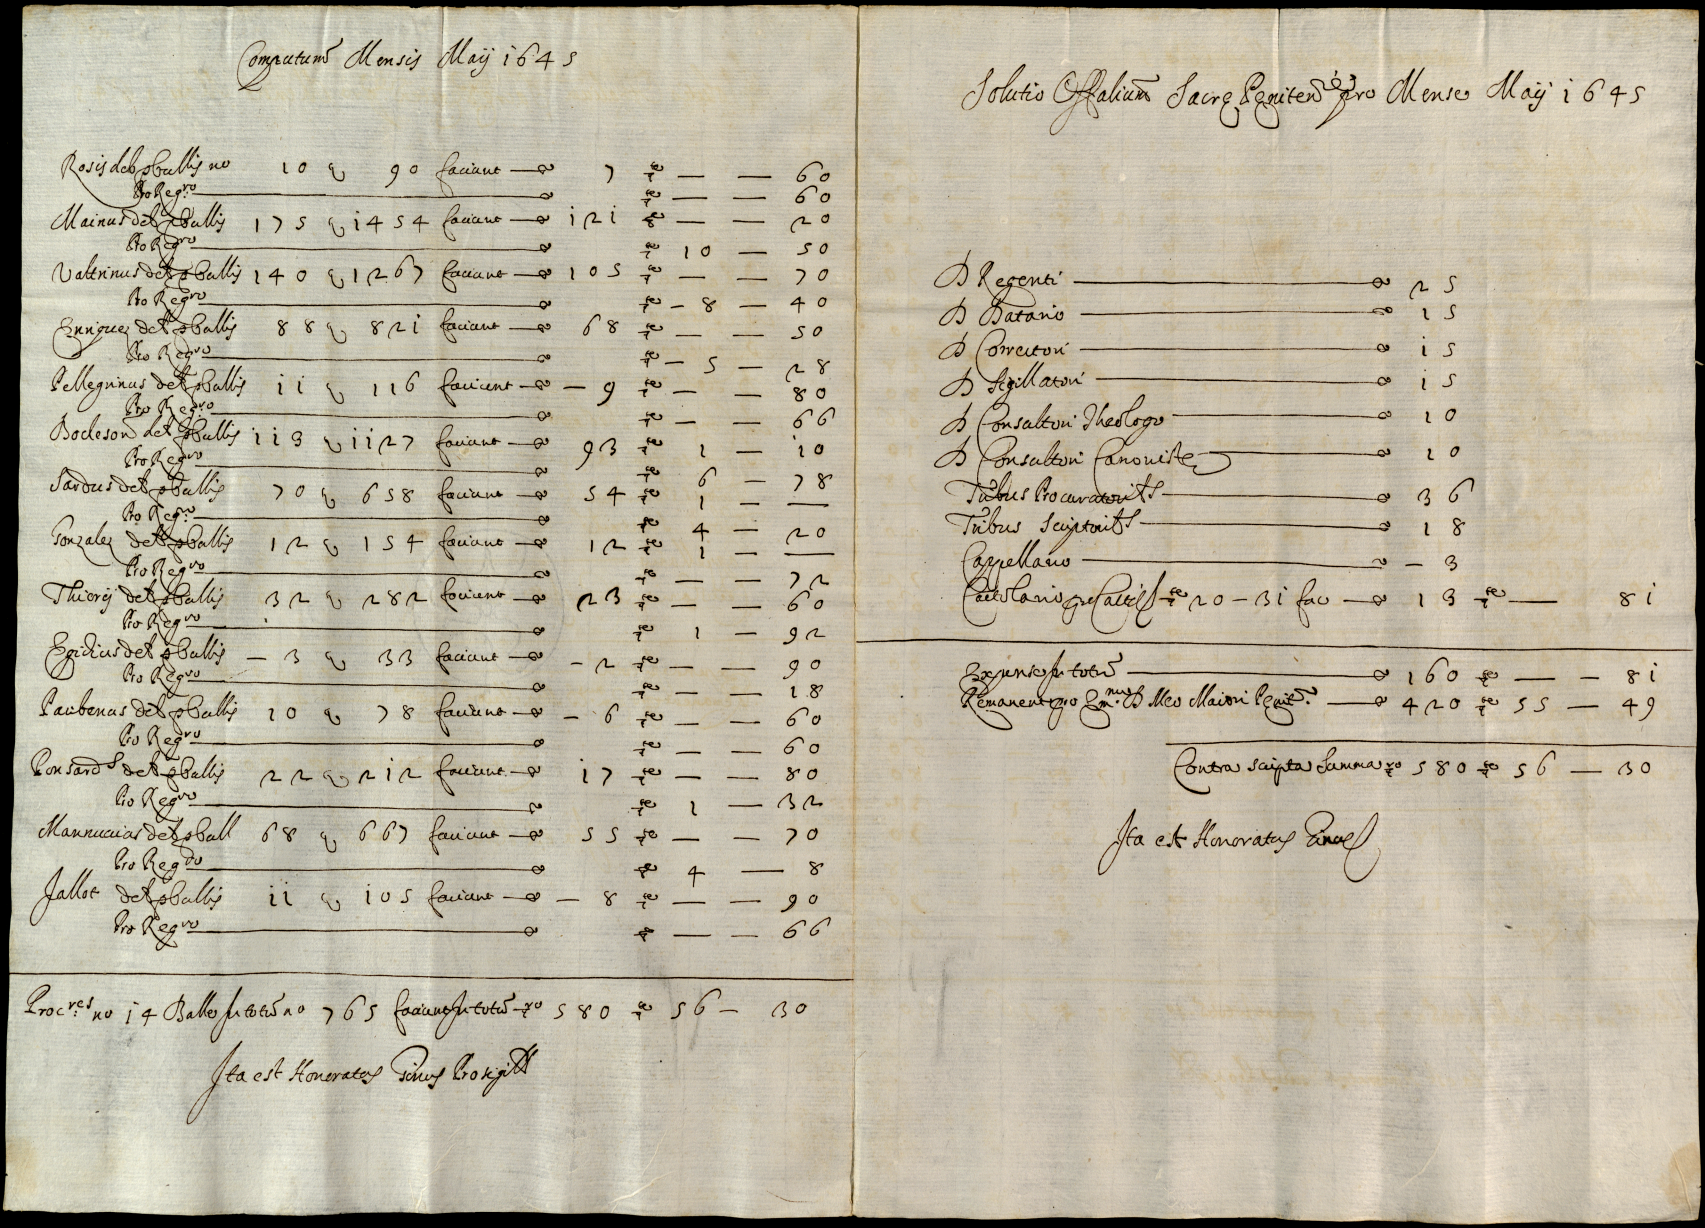 Computum Mensis Maij 1645
Rosis deb pbullis no 10 q 90 faciunt 7 — — 60
Pro Regro — — 60
Mainus det pbullis 175 q 1454 faciunt 121 — — 20
Pro Regro 10 — 50
Valtrinus det pbullis 140 q 1267 faciunt 105 — — 70
Pro Regro — 8 — 40
Enriquez det pbullis 88 q 821 faciunt 68 — — 50
Pro Regro — 5 — 28
Pellegrinus det pbullis 11 q 116 faciunt — 9 — — 80
Pro Regro — — 66
Bodeson det pbullis 113 q 1127 faciunt 93 1 — 10
Pro Regro 6 — 78
Sardus det pbullis 70 q 658 faciunt 54 1 — —
Pro Regro 4 — 20
Gonzalez det pbullis 12 q 154 faciunt 12 1 — —
Pro Regro — — 72
Thierij det pbullis 32 q 282 faciunt 23 — — 60
Pro Regro 1 — 92
Egidius det pbullis — 3 q 33 faciunt — 2 — — 90
Pro Regro — — 18
Paubenas det pbullis 10 q 78 faciunt — 6 — — 60
Pro Regro — — 60
Ponsards det pbullis 22 q 212 faciunt 17 — — 80
Pro Regro 1 — 32
Mannucius det pbull 68 q 667 faciunt 55 — — 70
Pro Regdo 4 — 8
Jallot det pbullis 11 q 105 faciunt — 8 — — 90
Pro Regro — — 66
Procres no 14 Bulle In totu no 765 faciunt In totu 580 56 — 30
Ita est Honoratus Pro sigill
Solutio Offalium Sacre Peniten pro Mense Maij 1645
D Regenti 25
D Datario 15
D Correctori 15
D Sigillatori 15
D Consultori Theologo 10
D Consultori Canoniste 10
Tribus Procuratoribs 36
Tribus Scriptoribs 18
Cappellano — 3
20 — 31 fac 13 — 81
Expense In totu 160 — — 81
Remanent pro Emmo D Meo Maiori Peniten. 420 55 — 49
Contra scripta summa 580 56 — 30
Ita est Honoratus